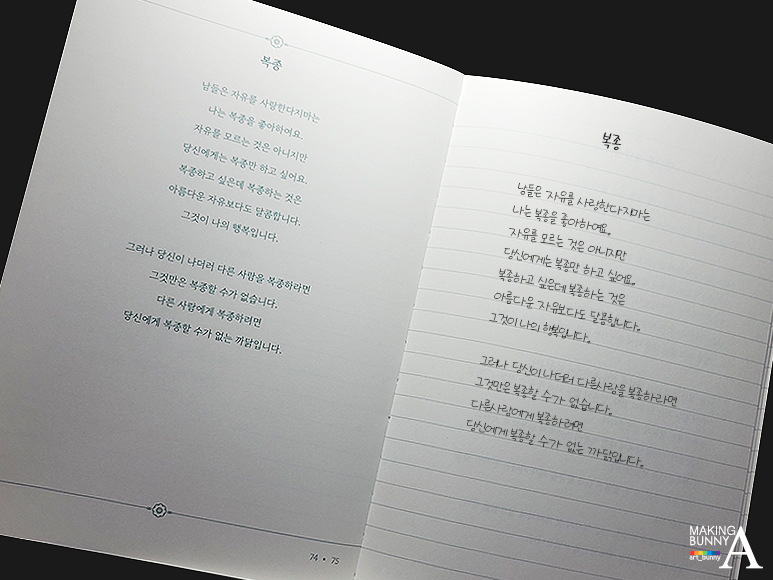 복종
남들은 자유를 사랑한다지마는
나는 복종을 좋아하여요.
자유를 모르는 것은 아니지만
당신에게는 복종만 하고 싶어요.
복종하고 싶은데 복종하는 것은
아름다운 자유보다도 달콤합니다.
그것이 나의 행복입니다.
그러나 당신이 나더러 다른 사람을 복종하라면
그것만은 복종할 수가 없습니다.
다른 사람에게 복종하려면
당신에게 복종할 수가 없는 까닭입니다.
74 • 75
복종
남들은 자유를 사랑한다지마는
나는 복종을 좋아하여요.
자유를 모르는 것은 아니지만
당신에게는 복종만 하고 싶어요.
복종하고 싶은데 복종하는 것은
아름다운 자유보다도 달콤합니다.
그것이 나의 행복입니다.
그러나 당신이 나더러 다른사람을 복종하라면
그것만은 복종할 수가 없습니다.
다른사람에게 복종하려면
당신에게 복종할 수가 없는 까닭입니다.
MAKING
BUNNY
art_bunny
A